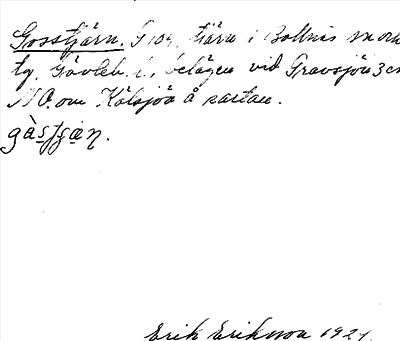 Gosstjärn. tjärn i Bollnäs sn
tg. Gävleb. l., belägen vid Gravsjön 3
N.O. om Kälsjön å kartan.
Erik Eriksson 192